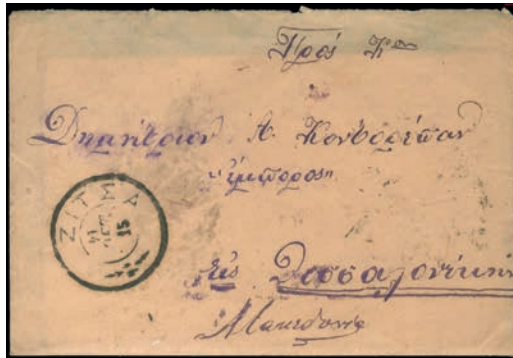 Πρός Κον
Δημήτριον Α.
"έμπορος"
ΖΙΤΣΑ
15
εἰς Θεσσαλονίκην
Μακεδονία